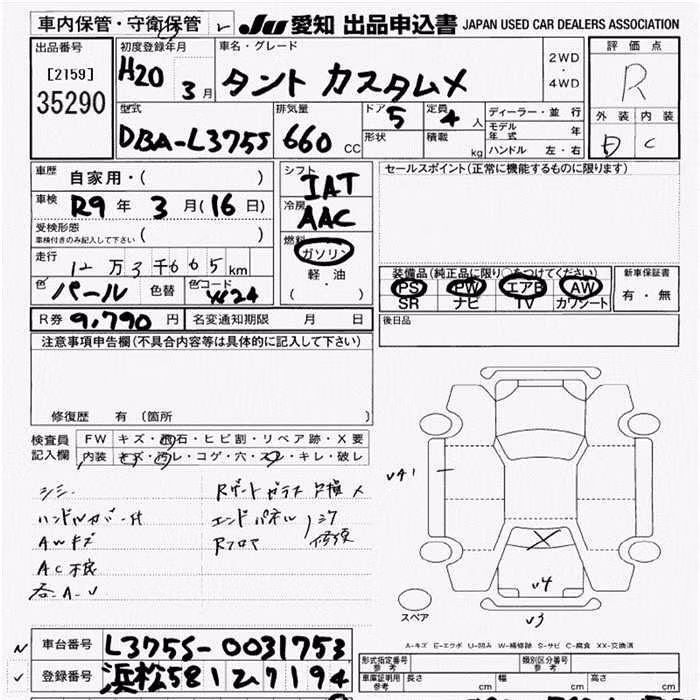 車内保管・守衛保管
JU 愛知 出品申込書 JAPAN USED CAR DEALERS ASSOCIATION
出品番号
[2159]
35290
初度登録年月
H20 3月
車名・グレード
タント カスタムX
2WD
・
4WD
評価点
R
外装 内装
D C
型式
DBA-L375S
排気量
660 CC
ドア 5
形状
定員 4人
積載 kg
ディーラー・並行
モデル年式 年
ハンドル 左・右
車歴 自家用・( )
車検 R9年 3月(16日)
受検形態
車検付きのみ記入して下さい ( )
走行 12万3千665km
色 パール 色替 色コード W24
シフト IAT
冷房 AAC
燃料
ガソリン
軽・油
( )
セールスポイント(正常に機能するものに限ります)
装備品(純正品に限り○をつけてください)
PS PW エアB AW
SR ナビ TV カワシート
新車保証書
有・無
R券 9,790円 名変通知期限 月 日
後日品
注意事項申告欄(不具合内容等は具体的に記入して下さい)
修復歴 有 (箇所 )
検査員記入欄
FW キズ・飛石・ヒビ割・リペア跡・X要
内装 キズ・汚レ・コゲ・穴・スレ・キレ・破レ
シミ
ハンドルカバー付
AWキズ
AC不良
各A.U
Rゲートガラス
エンドパネル
Rフロア
修復
U41
U4
U3
スペア
A-キズ E-エクボ U-凹み W-補修跡 S-サビ C-腐食 XX-交換済
車台番号 L375S-0031753
登録番号 浜松581み7194
型式指定番号
参考
類別区分番号
参考
車庫証明用
参考
長さ cm
幅 cm
高さ cm